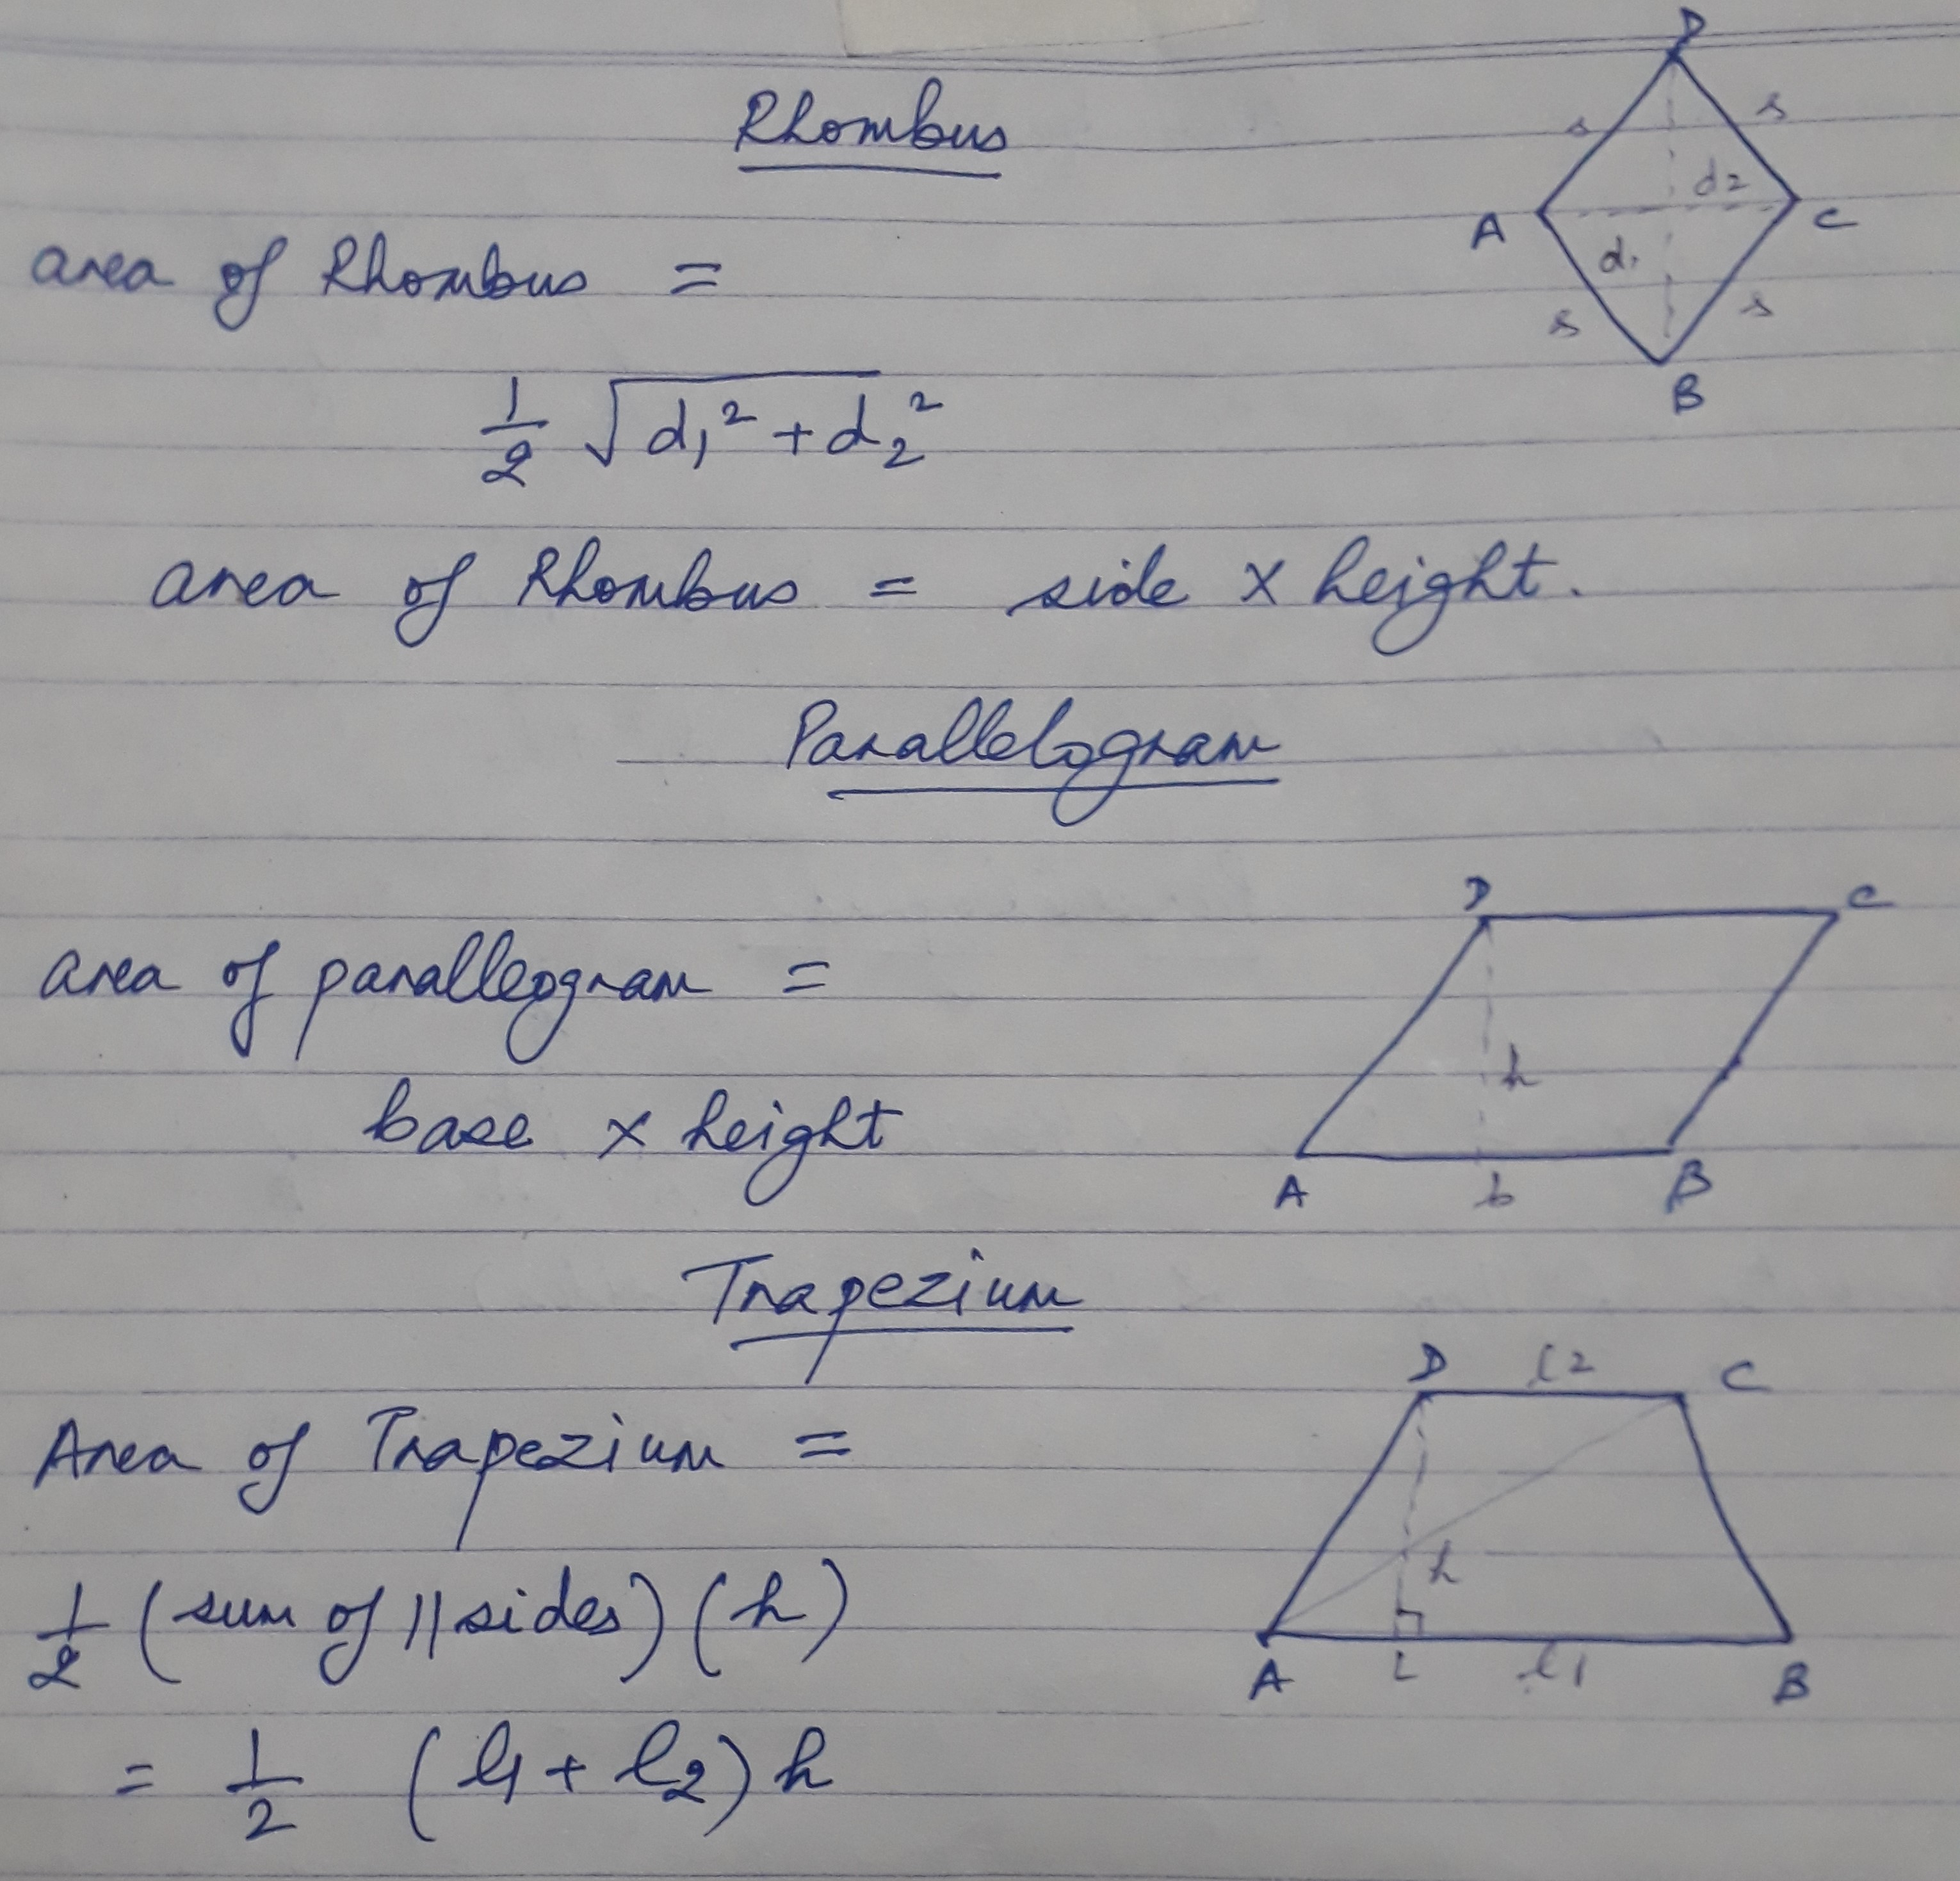 Rhombus
D
s s
d2
A C
d1
s s
B
area of Rhombus =
1/2 √d₁² + d₂²
area of Rhombus = side × height.
Parallelogram
D C
area of paralleogram =
h
base × height
A b B
Trapezium
D l2 C
Area of Trapezium =
h
1/2 (sum of || sides) (h)
A L l1 B
= 1/2 (l1 + l2) h